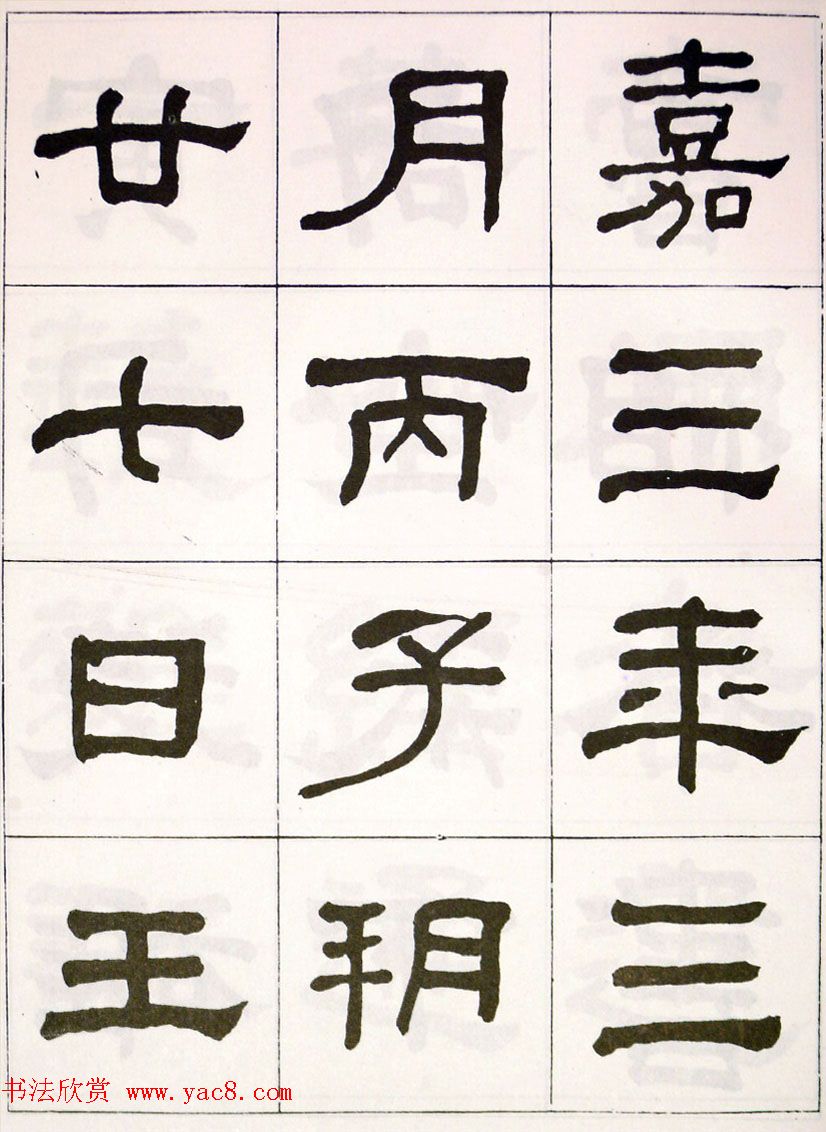 嘉三年三
月丙子朔
廿七日壬
书法欣赏 www.yac8.com